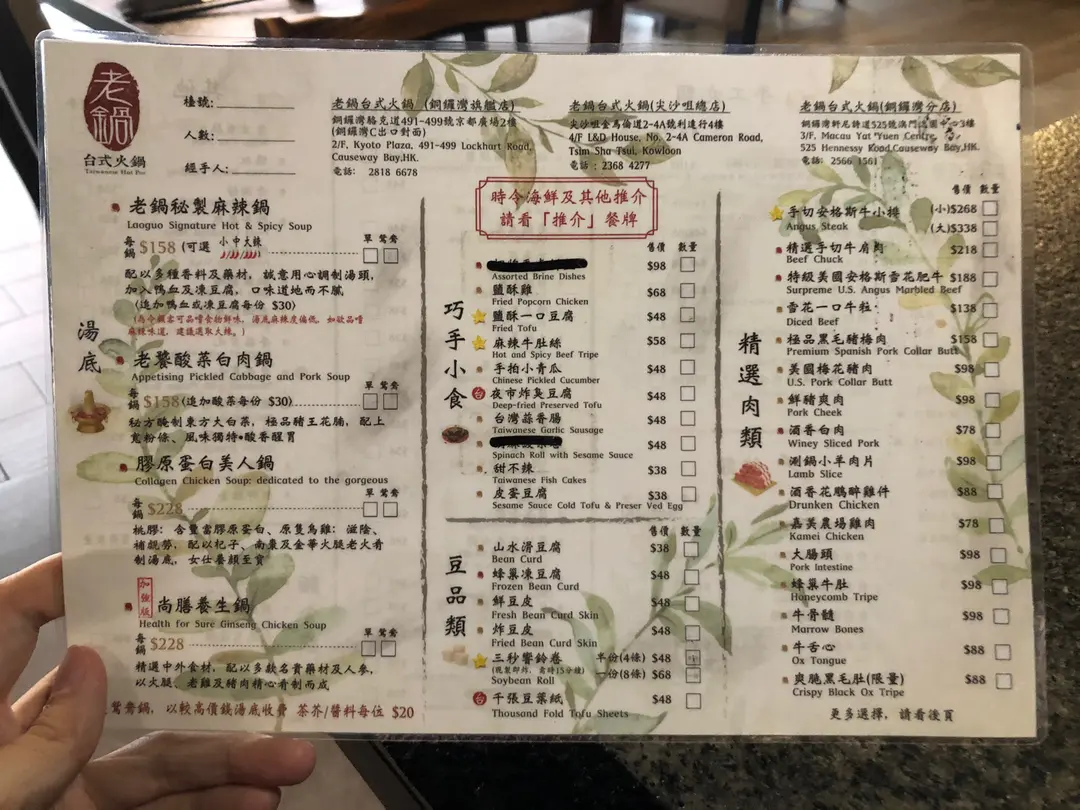 老鍋
台式火鍋
Taiwanese Hot Pot
檯號:
人數:
經手人:
老鍋台式火鍋 (銅鑼灣旗艦店)
銅鑼灣駱克道491-499號京都廣場2樓
(銅鑼灣C出口對面)
2/F, Kyoto Plaza, 491-499 Lockhart Road,
Causeway Bay,HK.
電話: 2818 6678
老鍋台式火鍋(尖沙咀總店)
尖沙咀金馬倫道2-4A號利達行4樓
4/F L&D House, No. 2-4A Cameron Road,
Tsim Sha Tsui, Kowloon
電話 : 2368 4277
老鍋台式火鍋(銅鑼灣分店)
銅鑼灣軒尼詩道525號澳門逸園中心3樓
3/F, Macau Yat Yuen Centre,
525 Hennessy Road,Causeway Bay,HK.
電話: 2566 1561
湯底
老鍋秘製麻辣鍋
Laoguo Signature Hot & Spicy Soup
單 鴛鴦
每鍋 $158 (可選 小 中 大辣)
配以多種香料及藥材, 誠意用心調制湯頭,
加入鴨血及凍豆腐, 口味道地而不膩
(追加鴨血或凍豆腐每份 $30)
(為令顧客可品嚐食物鮮味, 湯底麻辣度偏低, 如欲品嚐
麻辣味道, 建議選取大辣。)
老饕酸菜白肉鍋
Appetising Pickled Cabbage and Pork Soup
單 鴛鴦
每鍋 $158(追加酸菜每份 $30)
秘方醃制東方大白菜, 極品豬王花腩, 配上
寬粉條、風味獨特•酸香醒胃
膠原蛋白美人鍋
Collagen Chicken Soup: dedicated to the gorgeous
單 鴛鴦
每鍋 $228
桃膠: 含豐富膠原蛋白、原隻烏雞: 滋陰、
補虛勞, 配以杞子、南棗及金華火腿老火肴
制湯底, 女仕養顏至寶
加強版
尚膳養生鍋
Health for Sure Ginseng Chicken Soup
單 鴛鴦
每鍋 $228
精選中外食材, 配以多款名貴藥材及人參,
以火腿、老雞及豬肉精心肴制而成
鴛鴦鍋, 以較高價錢湯底收費 茶芥/醬料每位 $20
時令海鮮及其他推介
請看「推介」餐牌
巧手小食
售價 數量
Assorted Brine Dishes $98
鹽酥雞 $68
Fried Popcorn Chicken
鹽酥一口豆腐 $48
Fried Tofu
麻辣牛肚絲 $58
Hot and Spicy Beef Tripe
手拍小青瓜 $48
Chinese Pickled Cucumber
夜市炸臭豆腐 $48
Deep-fried Preserved Tofu
台灣蒜香腸 $48
Taiwanese Garlic Sausage
Spinach Roll with Sesame Sauce $48
甜不辣 $38
Taiwanese Fish Cakes
皮蛋豆腐 $38
Sesame Sauce Cold Tofu & Preser Ved Egg
豆品類
售價 數量
山水滑豆腐 $38
Bean Curd
蜂巢凍豆腐 $48
Frozen Bean Curd
鮮豆皮 $48
Fresh Bean Curd Skin
炸豆皮 $48
Fried Bean Curd Skin
三秒響鈴卷 半份(4條) $48
(現製即炸, 需時15分鐘) 一份(8條) $68
Soybean Roll
千張豆葉紙 $48
Thousand Fold Tofu Sheets
精選肉類
售價 數量
手切安格斯牛小排 (小)$268
Angus Steak (大)$338
精選手切牛肩肉 $218
Beef Chuck
特級美國安格斯雪花肥牛 $188
Surpreme U.S. Angus Marbled Beef
雪花一口牛粒 $138
Diced Beef
極品黑毛豬梅肉 $158
Premium Spanish Pork Collar Butt
美國梅花豬肉 $98
U.S. Pork Collar Butt
鮮豬爽肉 $98
Pork Cheek
酒香白肉 $78
Winey Sliced Pork
涮鍋小羊肉片 $98
Lamb Slice
酒香花鵰醉雞件 $88
Drunken Chicken
嘉美農場雞肉 $78
Kamei Chicken
大腸頭 $98
Pork Intestine
蜂巢牛肚 $98
Honeycomb Tripe
牛骨髓 $98
Marrow Bones
牛舌心 $88
Ox Tongue
爽脆黑毛肚(限量) $88
Crispy Black Ox Tripe
更多選擇, 請看後頁